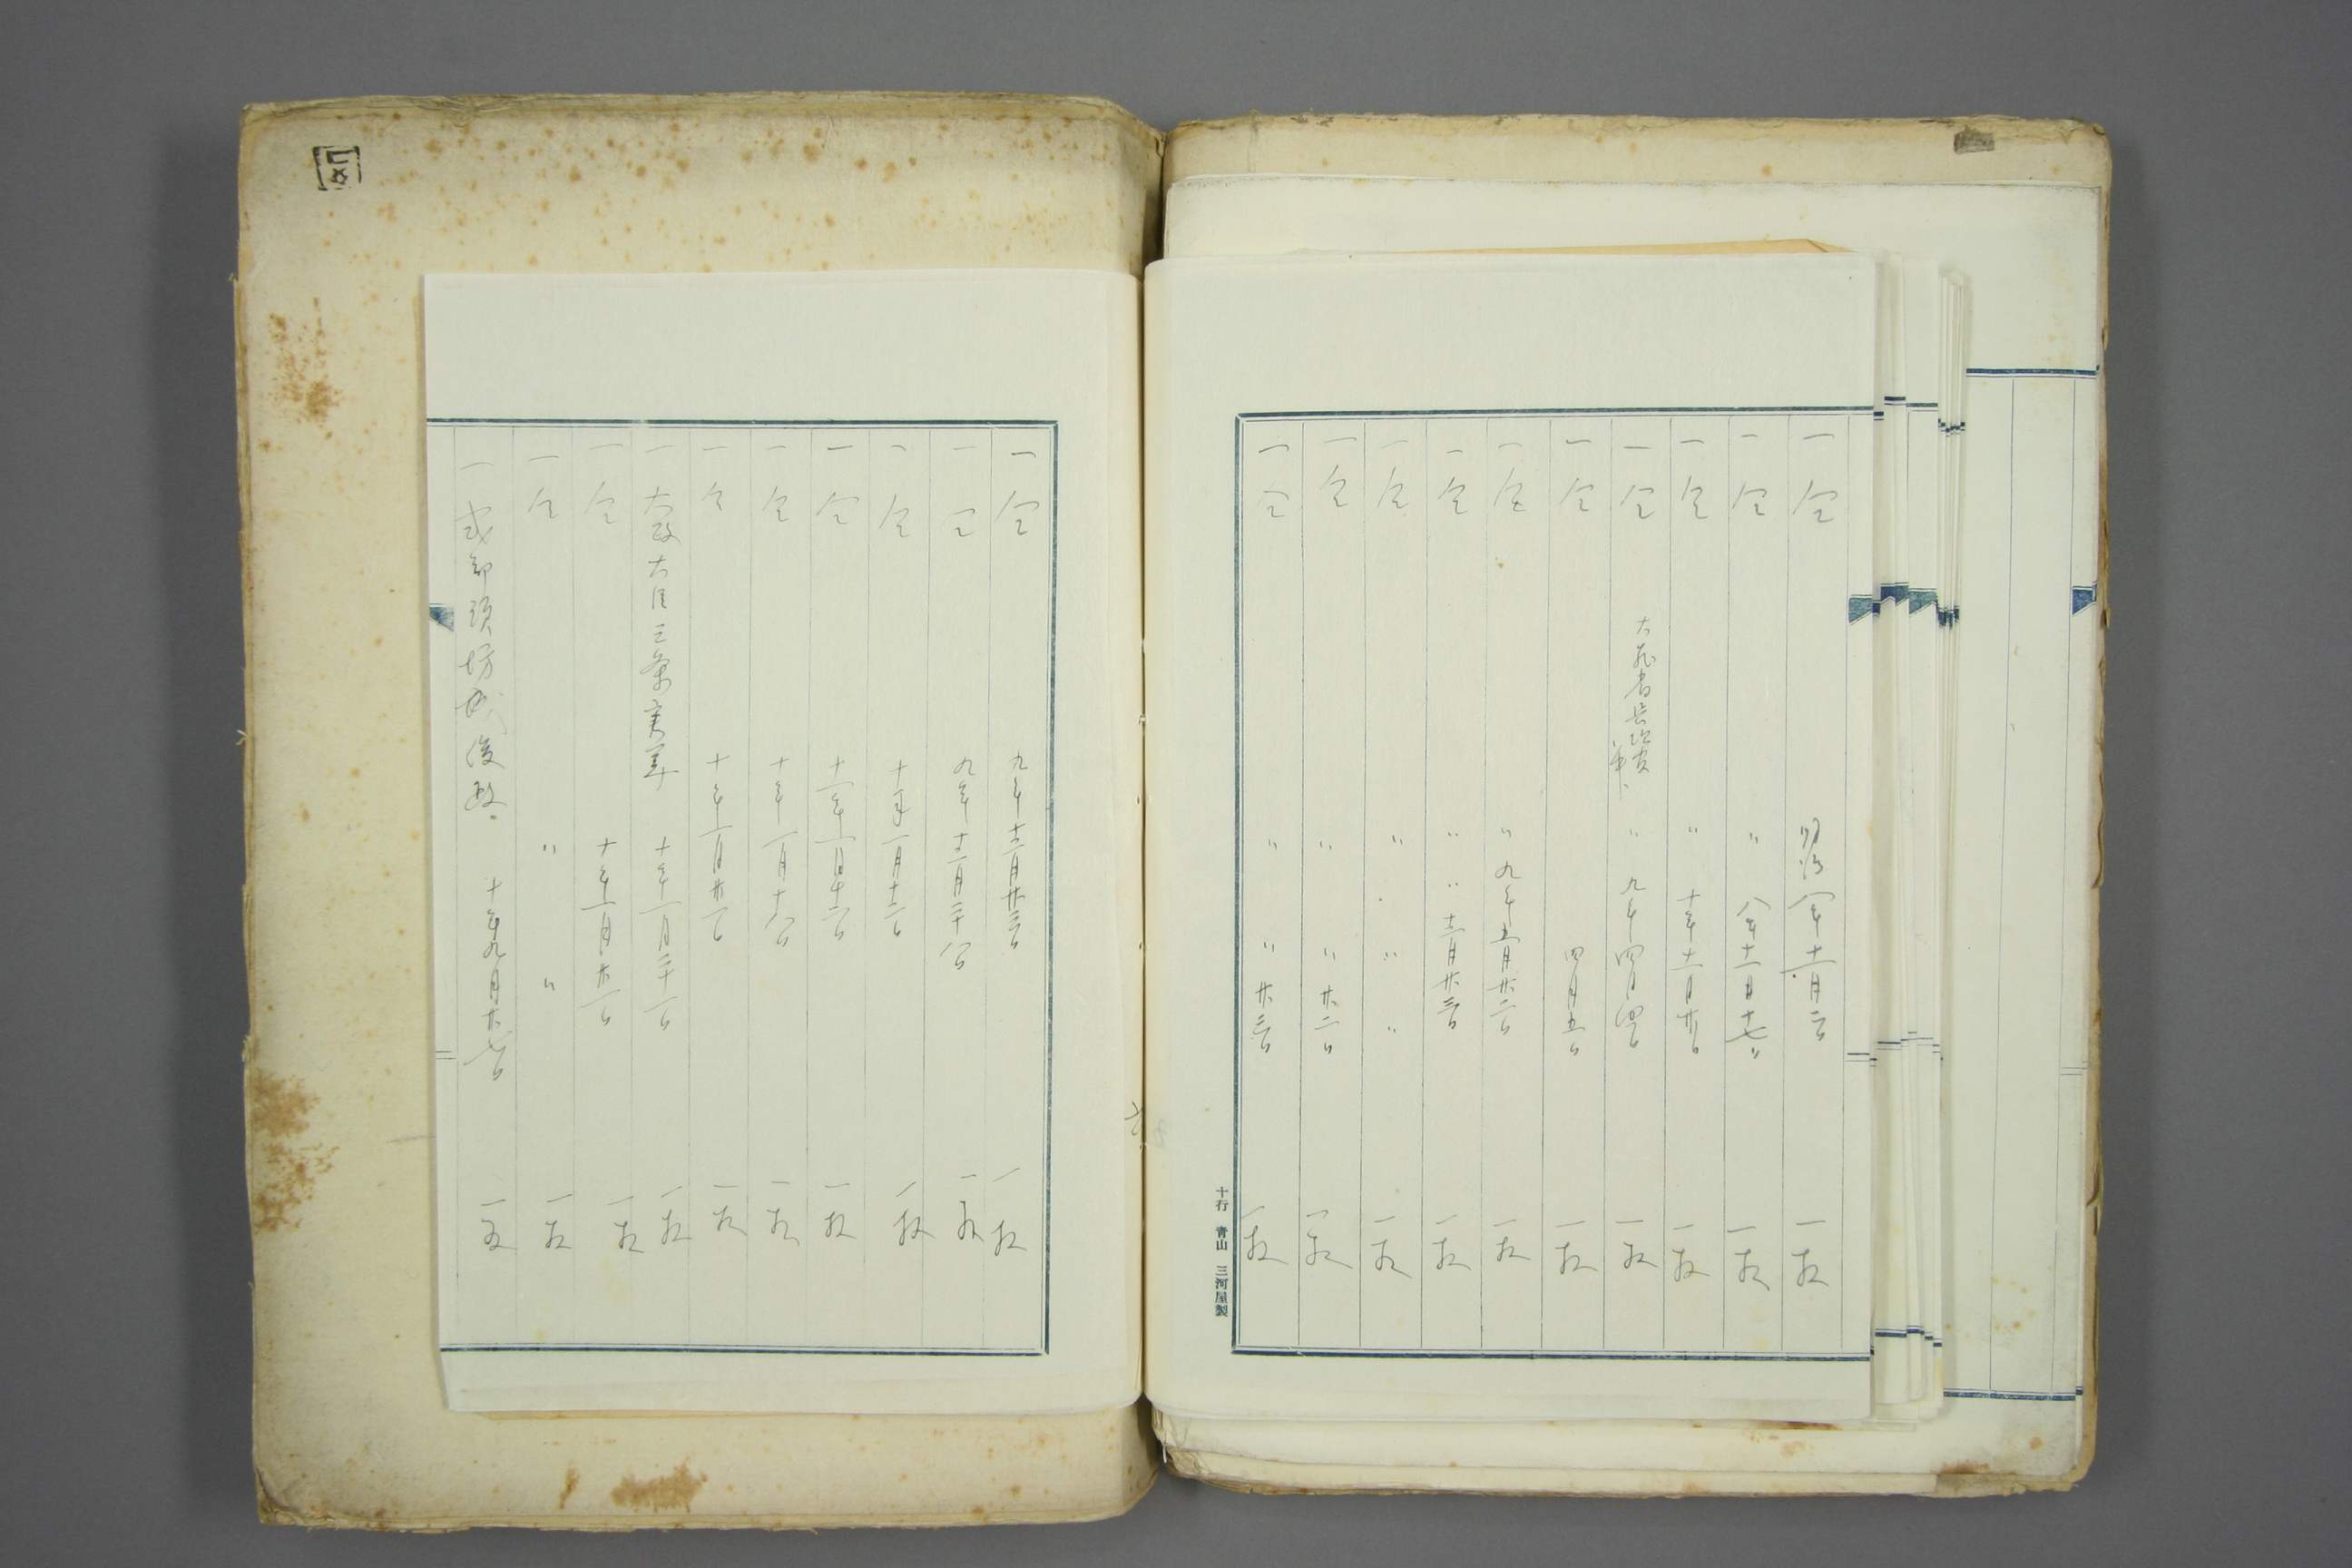 一仝 明治八年十二月二日 一枚
一仝 〃 八年十二月十七日 一枚
一仝 〃 十年十二月廿日 一枚
一仝 大蔵省 〃 九年四月四日 一枚
一仝 四月五日 一枚
一仝 〃 九年五月廿二日 一枚
一仝 〃 〃 十二月廿三日 一枚
一仝 〃 〃 〃 一枚
一仝 〃 〃 廿二日 一枚
一仝 〃 〃 廿三日 一枚
十行 青山 三河屋製
一仝 九年十二月廿三日 一枚
一仝 九年十二月二十八日 一枚
一仝 十年一月十二日 一枚
一仝 十一年一月十六日 一枚
一仝 十年一月十八日 一枚
一仝 十年一月廿一日 一枚
一太政大臣三条実美 十年一月二十一日 一枚
一仝 十年一月廿一日 一枚
一仝 〃 〃 一枚
一式部頭坊城俊政 十年九月廿七日 一枚